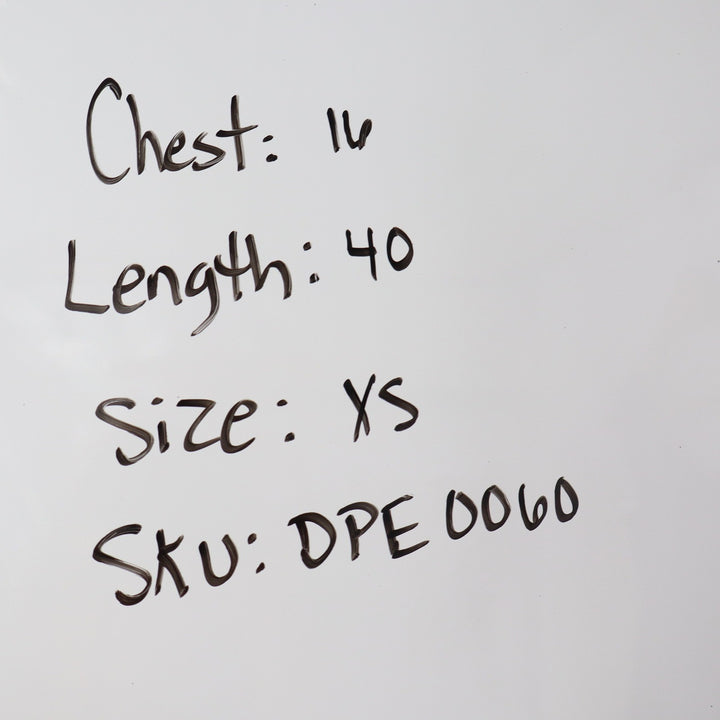 Chest: 16
Length: 40
Size: XS
SKU: DPE 0060